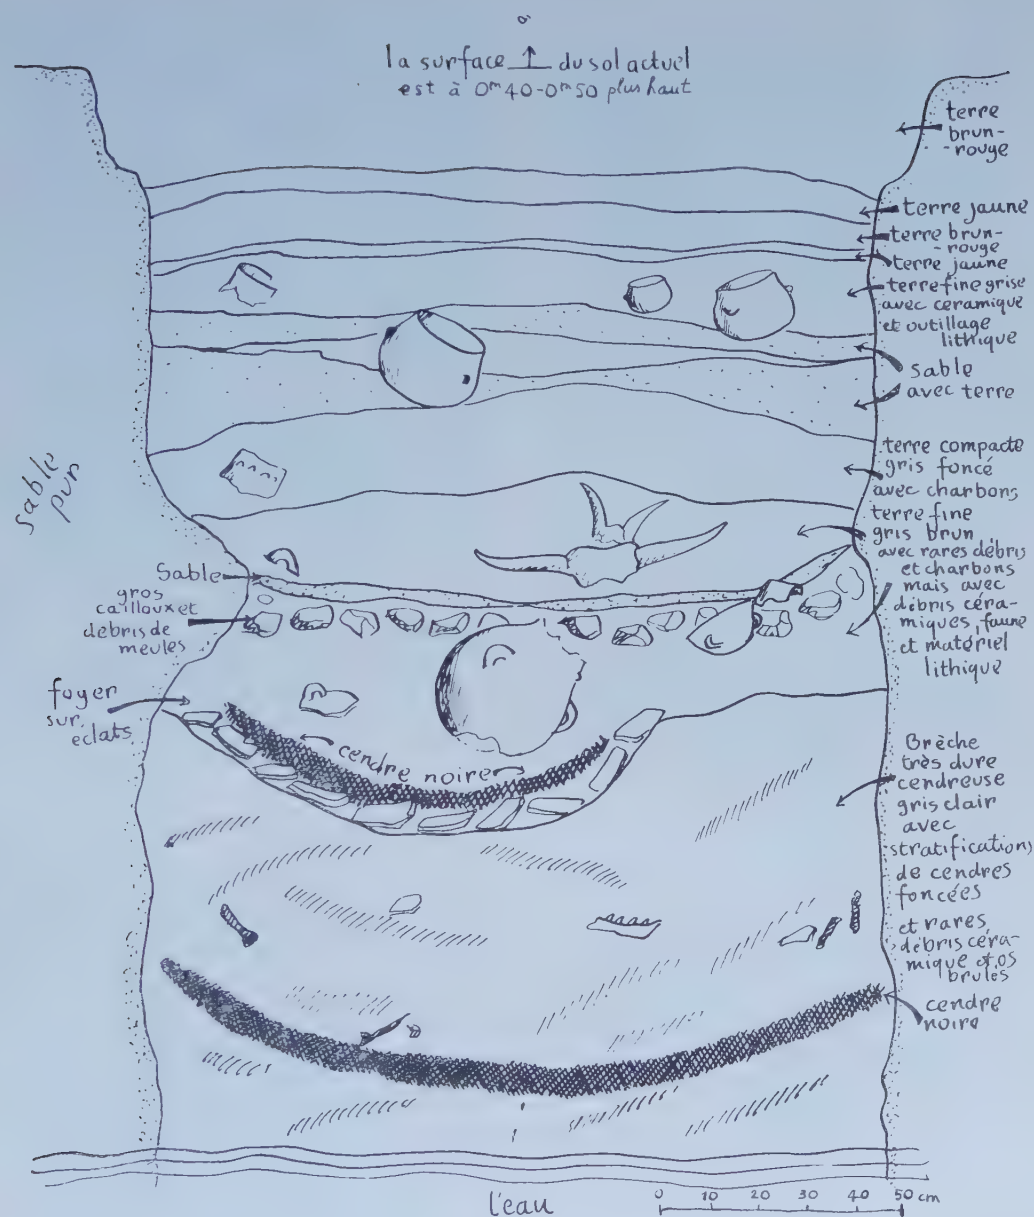 la surface ↑ du sol actuel
est à 0ᵐ40-0ᵐ50 plus haut
terre
brun-
-rouge
terre jaune
terre brun-
-rouge
terre jaune
terre fine grise
avec céramique
et outillage
lithique
sable
avec terre
terre compacte
gris foncé
avec charbons
terre fine
gris brun
avec rares débris
et charbons
mais avec
débris céra-
miques, faune
et matériel
lithique
Brèche
très dure
cendreuse
gris clair
avec
stratifications
de cendres
foncées
et rares
débris céra-
mique et os
brulés
cendre
noire
sable
pur
Sable
gros
cailloux et
débris de
meules
foyer
sur
eclats
cendre noire
l'eau
0 10 20 30 40 50 cm